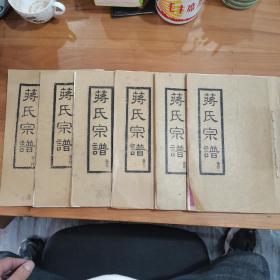 蔣氏宗譜
蔣氏宗譜
蔣氏宗譜
蔣氏宗譜
蔣氏宗譜
蔣氏宗譜